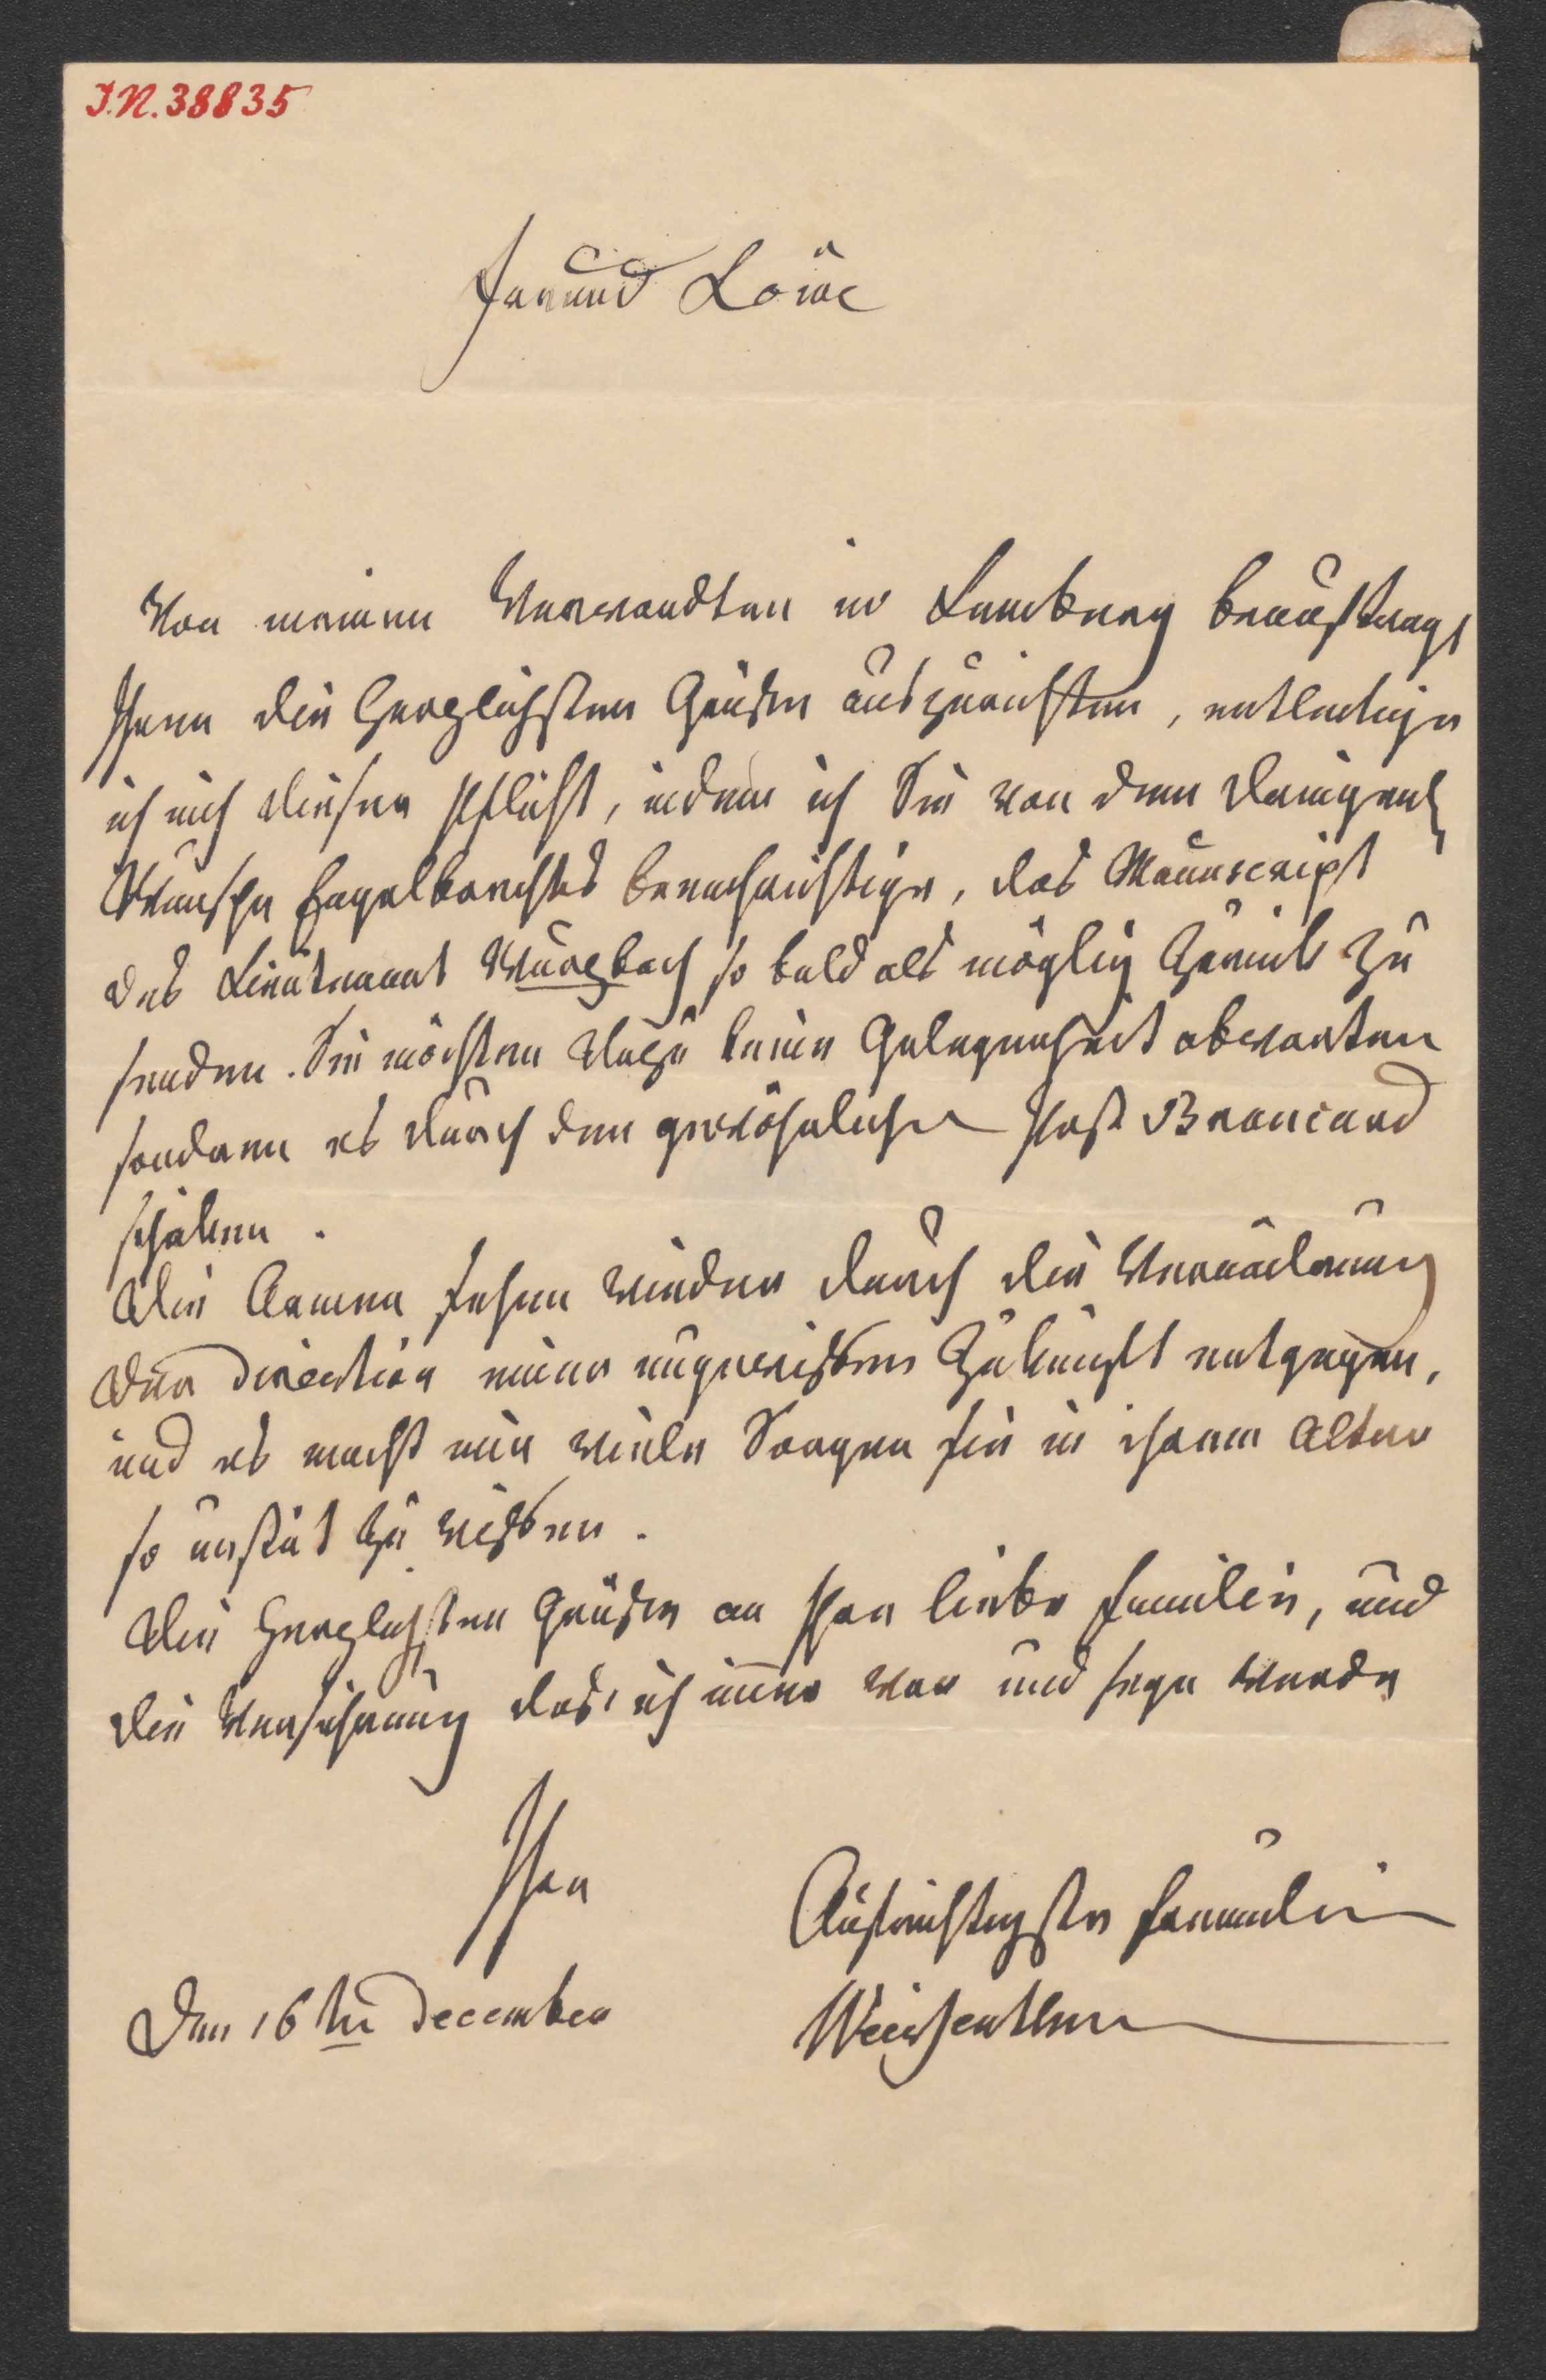 I.N. 38835
Freund Löwe
Von meinen Verwandten in Lemberg beauftragt
Ihnen die herzlichsten Grüße auszurichten, entledige
ich mich dieser Pflicht, indem ich Sie von dem dringends
Wunsche Engelbrechts benachrichtige, das Manuscript
des Lieutenant Wurzbach so bald als möglig zurück zu
senden. Sie möchten dazu keine Gelegenheit abwarten
sondern es durch den gewöhnlichen Post Brancard
schiken.
Die Armen sehen wieder durch die Veränderung
der Direction einer ungewissen Zukunft entgegen,
und es macht mir viele Sorgen sie in ihrem Alter
so unstät zu wissen.
Die herzlichsten Grüße an Ihre liebe Familie, und
die Versicherung das ich immer war und seyn werde
Ihre
Aufrichtigste Freundin
Den 16ten December
Weissenthurn